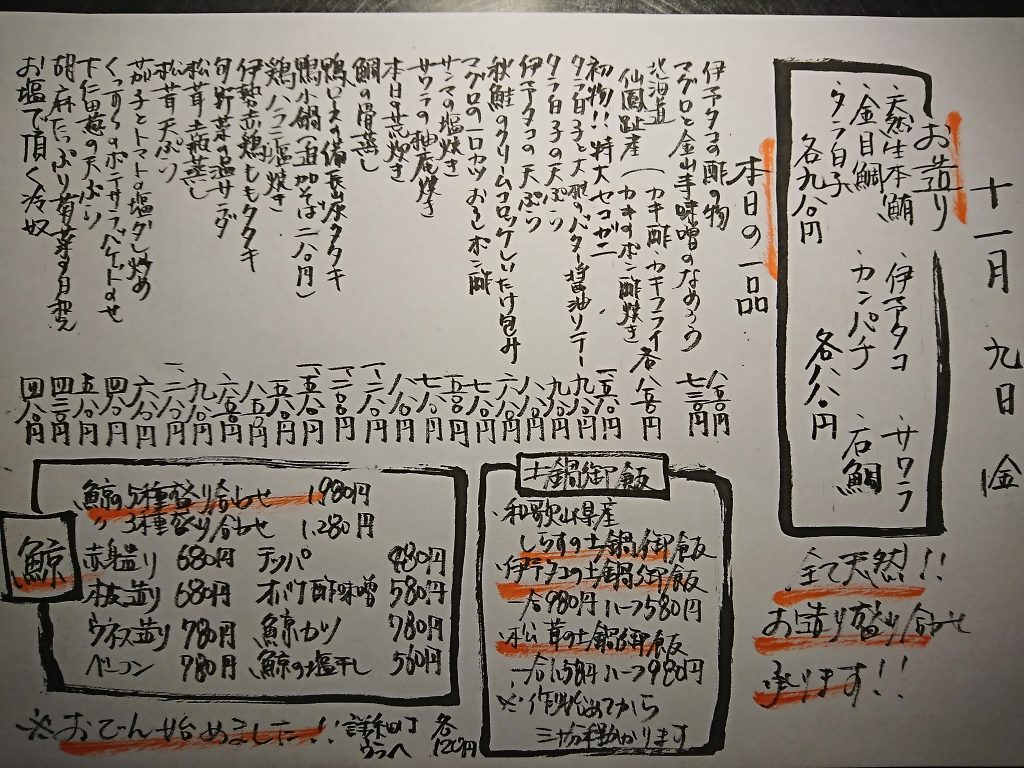 十一月 九日 金
お造り
・天然生本鮪 ・伊予タコ ・サワラ
・金目鯛 ・カンパチ ・石鯛
・タラ白子
各九八〇円 各八八〇円
全て天然!!
お造り盛り合わせ
承ります!!
本日の一品
伊予タコの酢の物 八五〇円
マグロと金山寺味噌のなめろう 七三〇円
北海道
仙鳳趾産 (カキ酢・カキフライ
カキのポン酢焼き 各八五〇円
初物!!特大セコガニ 一、五八〇円
タラ白子と大根のバター醤油ソテー 九八〇円
タラ白子の天ぷら 八八〇円
伊予タコの天ぷら 六八〇円
秋鮭のクリームコロッケしいたけ包み 七八〇円
マグロの一口カツ おろしポン酢
サンマの塩焼き 七八〇円
サワラの柚庵焼き 八八〇円
本日の荒炊き
鯛の骨蒸し
鴨ロースの備長山原タタキ 一、二八〇円
鴨小鍋(追加そば二八〇円) 一、五八〇円
鶏ハラミ塩焼き 五八〇円
伊勢赤鶏ももタタキ 八五〇円
旬野菜の温サラダ 六五〇円
松茸土瓶蒸し 九八〇円
松茸天ぷら 一、二八〇円
茄子とトマトの塩ダレ炒め 六八〇円
くっすらのポテサラバケットのせ 四八〇円
下仁田葱の天ぷら 五八〇円
胡麻たっぷり菊菜の白和え 四三〇円
お塩で頂く冷奴 四八〇円
土鍋御飯
・和歌山県産
しらすの土鍋御飯
・伊予タコの土鍋御飯
一合980円ハーフ580円
・松茸の土鍋御飯
一合1,58円ハーフ980円
※作り始めてから
三十分程かかります
鯨
鯨の5種盛り合わせ 1,980円
〃 3種盛り合わせ 1,280円
赤身造り 680円 テッパ 480円
本皮造り 680円 オバケ酢味噌 580円
ウネス造り 780円 鯨カツ 780円
ベーコン 780円 鯨の塩干し 560円
※おでん始めました!! 詳細は
ウラへ 各
120円